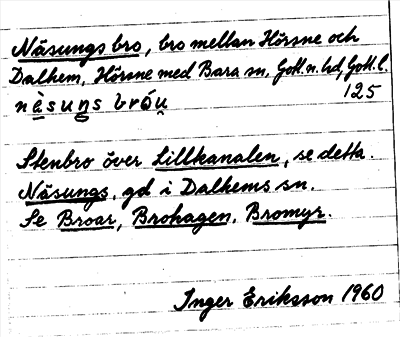 Näsungs bro, bro mellan Hörsne och
Dalhem, Hörsne med Bara sn, Gotl. n. hd, Gotl. l.
125
nèsuns bráu
Stenbro över Lillkanalen, se detta.
Näsungs, gd i Dalhems sn.
Se Broar, Brohagen, Bromyr.
Inger Eriksson 1960